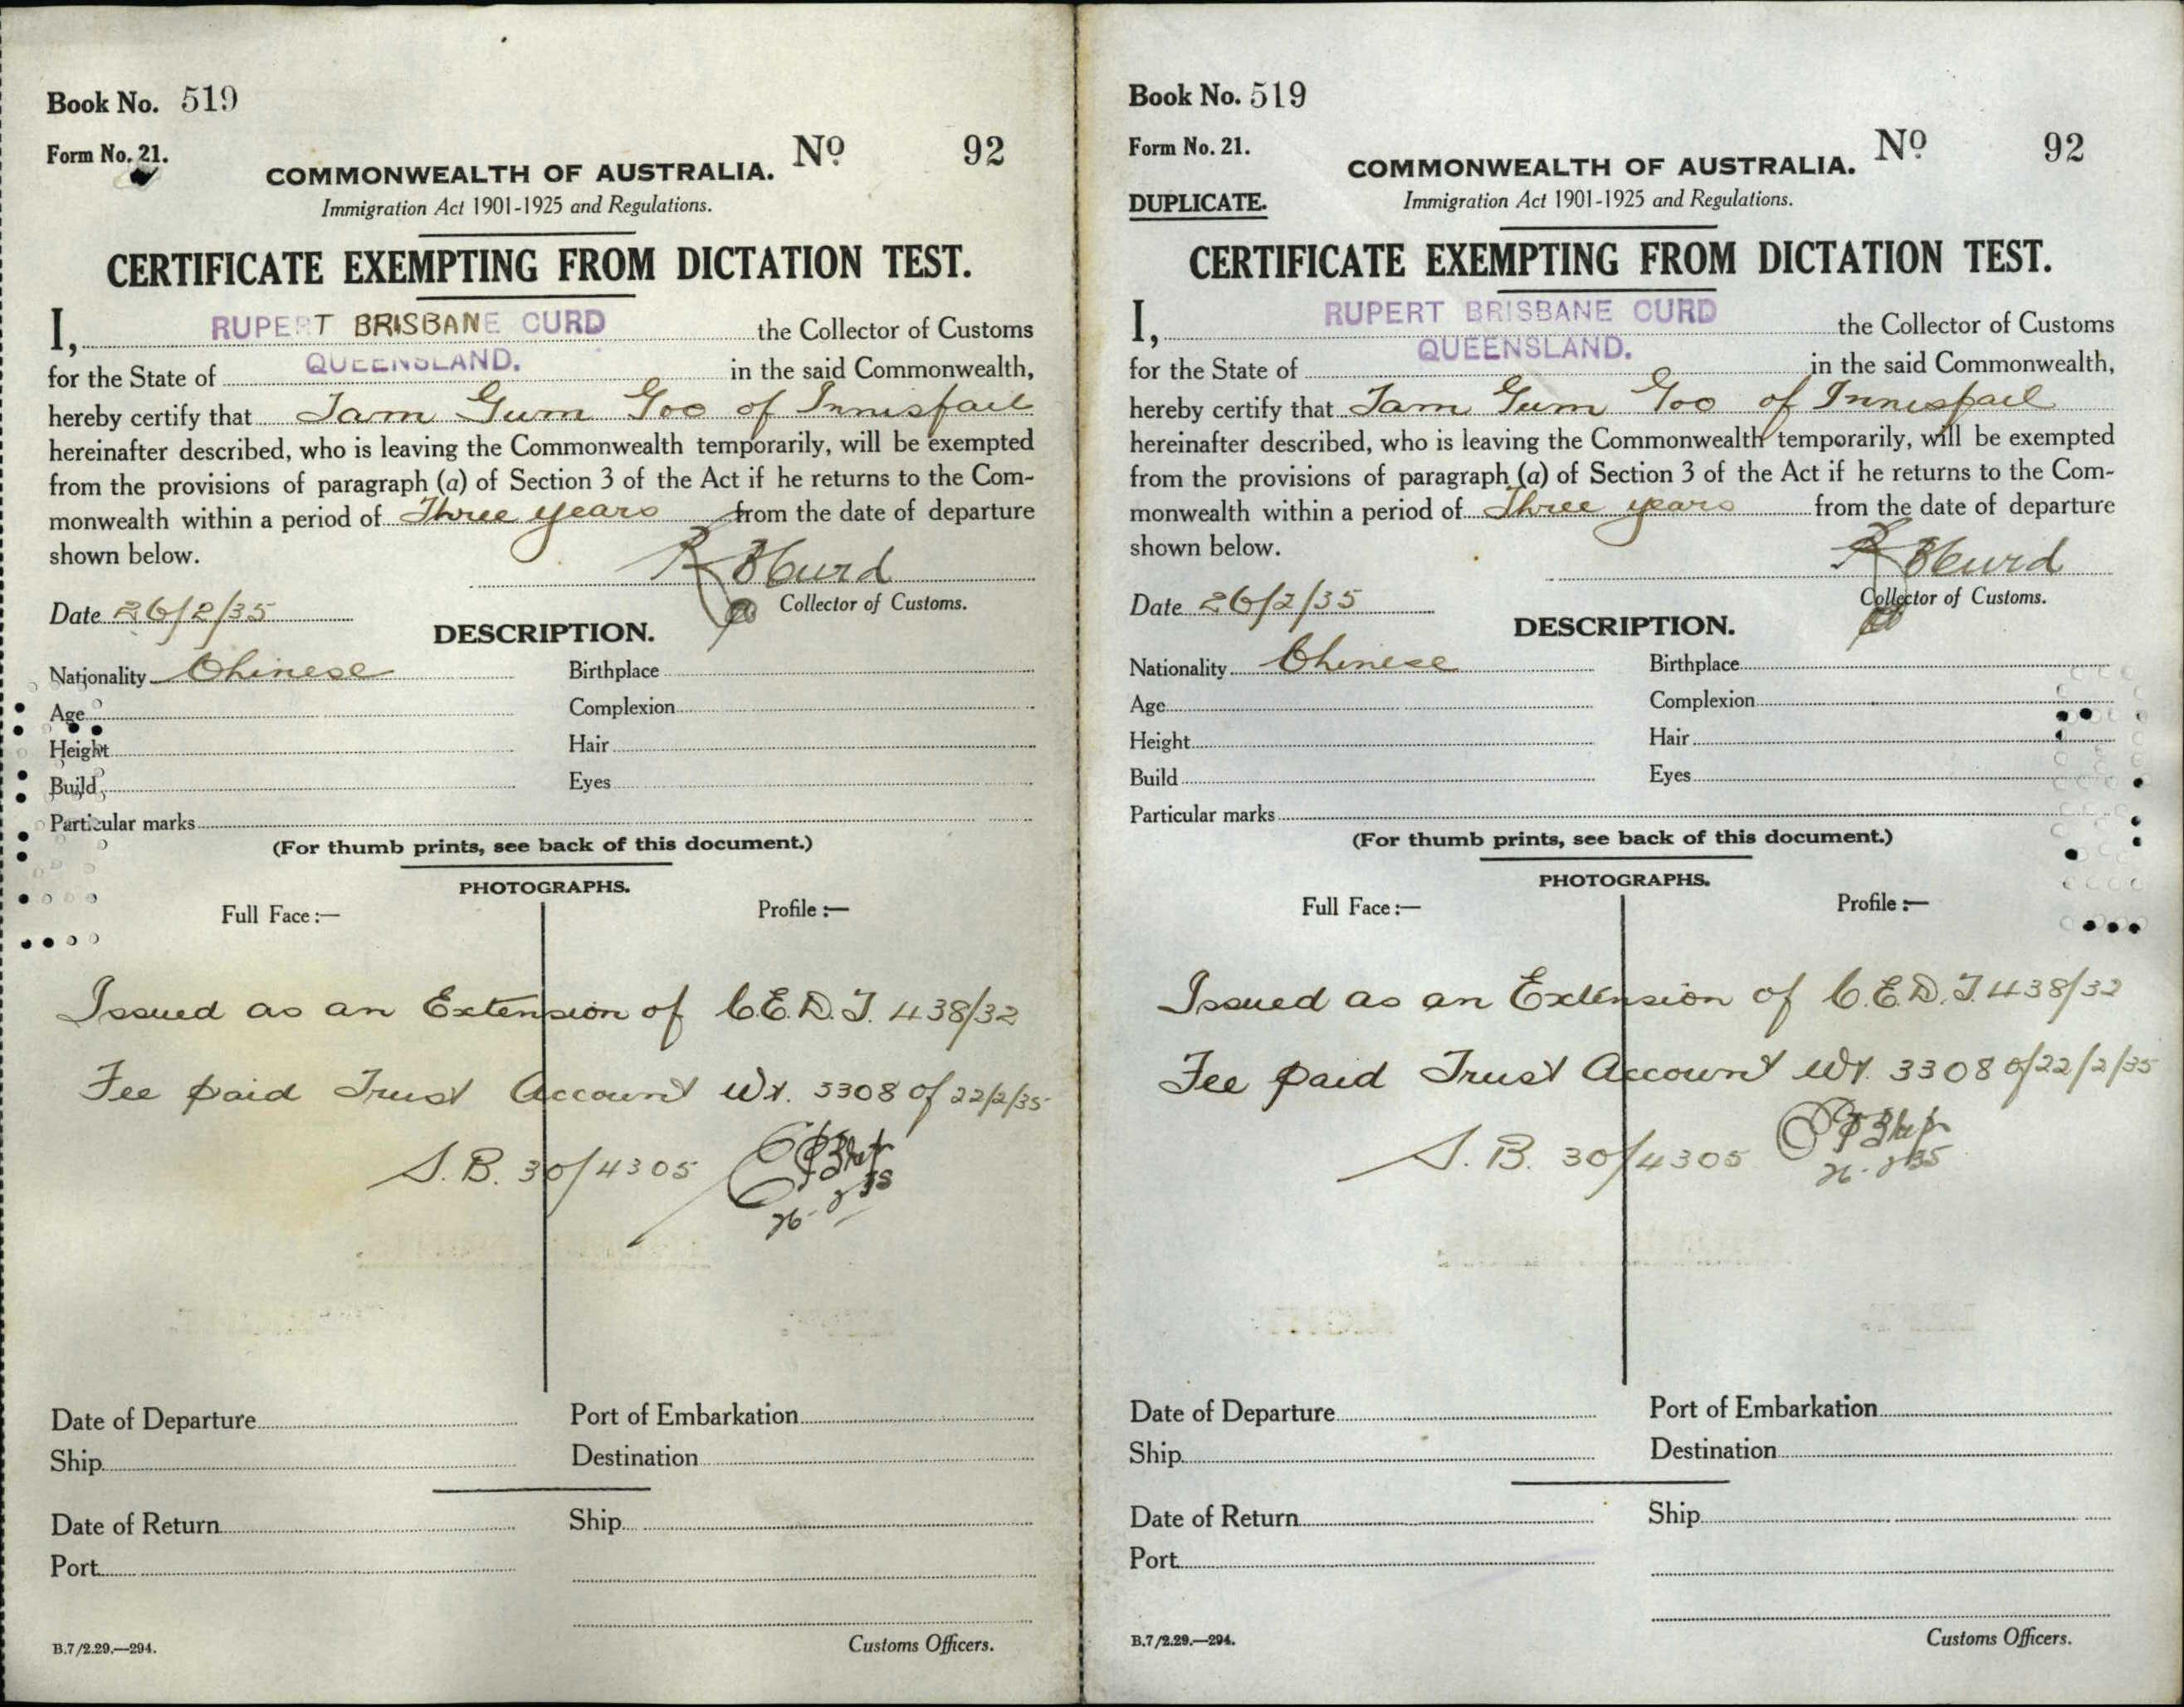 Book No. 519
Form No. 21.
COMMONWEALTH OF AUSTRALIA. No 92
Immigration Act 1901-1925 and Regulations.
CERTIFICATE EXEMPTING FROM DICTATION TEST.
I, RUPERT BRISBANE CURD the Collector of Customs
for the State of QUEENSLAND. in the said Commonwealth,
hereby certify that Tam Gum Goo of Innisfail
hereinafter described, who is leaving the Commonwealth temporarily, will be exempted
from the provisions of paragraph (a) of Section 3 of the Act if he returns to the Com-
monwealth within a period of Three years from the date of departure
shown below.
R B Curd
Collector of Customs.
Date 26/2/35
DESCRIPTION.
Nationality Chinese Birthplace
Age Complexion
Height Hair
Build Eyes
Particular marks
(For thumb prints, see back of this document.)
PHOTOGRAPHS.
Full Face:— Profile:—
Issued as an Extension of C.E.D.T. 438/32
Fee paid Trust Account Wt. 3308 of 22/2/35
S.B. 30/4305
26-2-35
Date of Departure Port of Embarkation
Ship Destination
Date of Return Ship
Port
B.7/2.29.—294. Customs Officers.
Book No. 519
Form No. 21.
COMMONWEALTH OF AUSTRALIA. No 92
DUPLICATE. Immigration Act 1901-1925 and Regulations.
CERTIFICATE EXEMPTING FROM DICTATION TEST.
I, RUPERT BRISBANE CURD the Collector of Customs
for the State of QUEENSLAND. in the said Commonwealth,
hereby certify that Tam Gum Goo of Innisfail
hereinafter described, who is leaving the Commonwealth temporarily, will be exempted
from the provisions of paragraph (a) of Section 3 of the Act if he returns to the Com-
monwealth within a period of Three years from the date of departure
shown below.
R B Curd
Collector of Customs.
Date 26/2/35
DESCRIPTION.
Nationality Chinese Birthplace
Age Complexion
Height Hair
Build Eyes
Particular marks
(For thumb prints, see back of this document.)
PHOTOGRAPHS.
Full Face:— Profile:—
Issued as an Extension of C.E.D.T. 438/32
Fee paid Trust Account Wt. 3308 of 22/2/35
S.B. 30/4305
26-2-35
Date of Departure Port of Embarkation
Ship Destination
Date of Return Ship
Port
B.7/2.29.—294. Customs Officers.